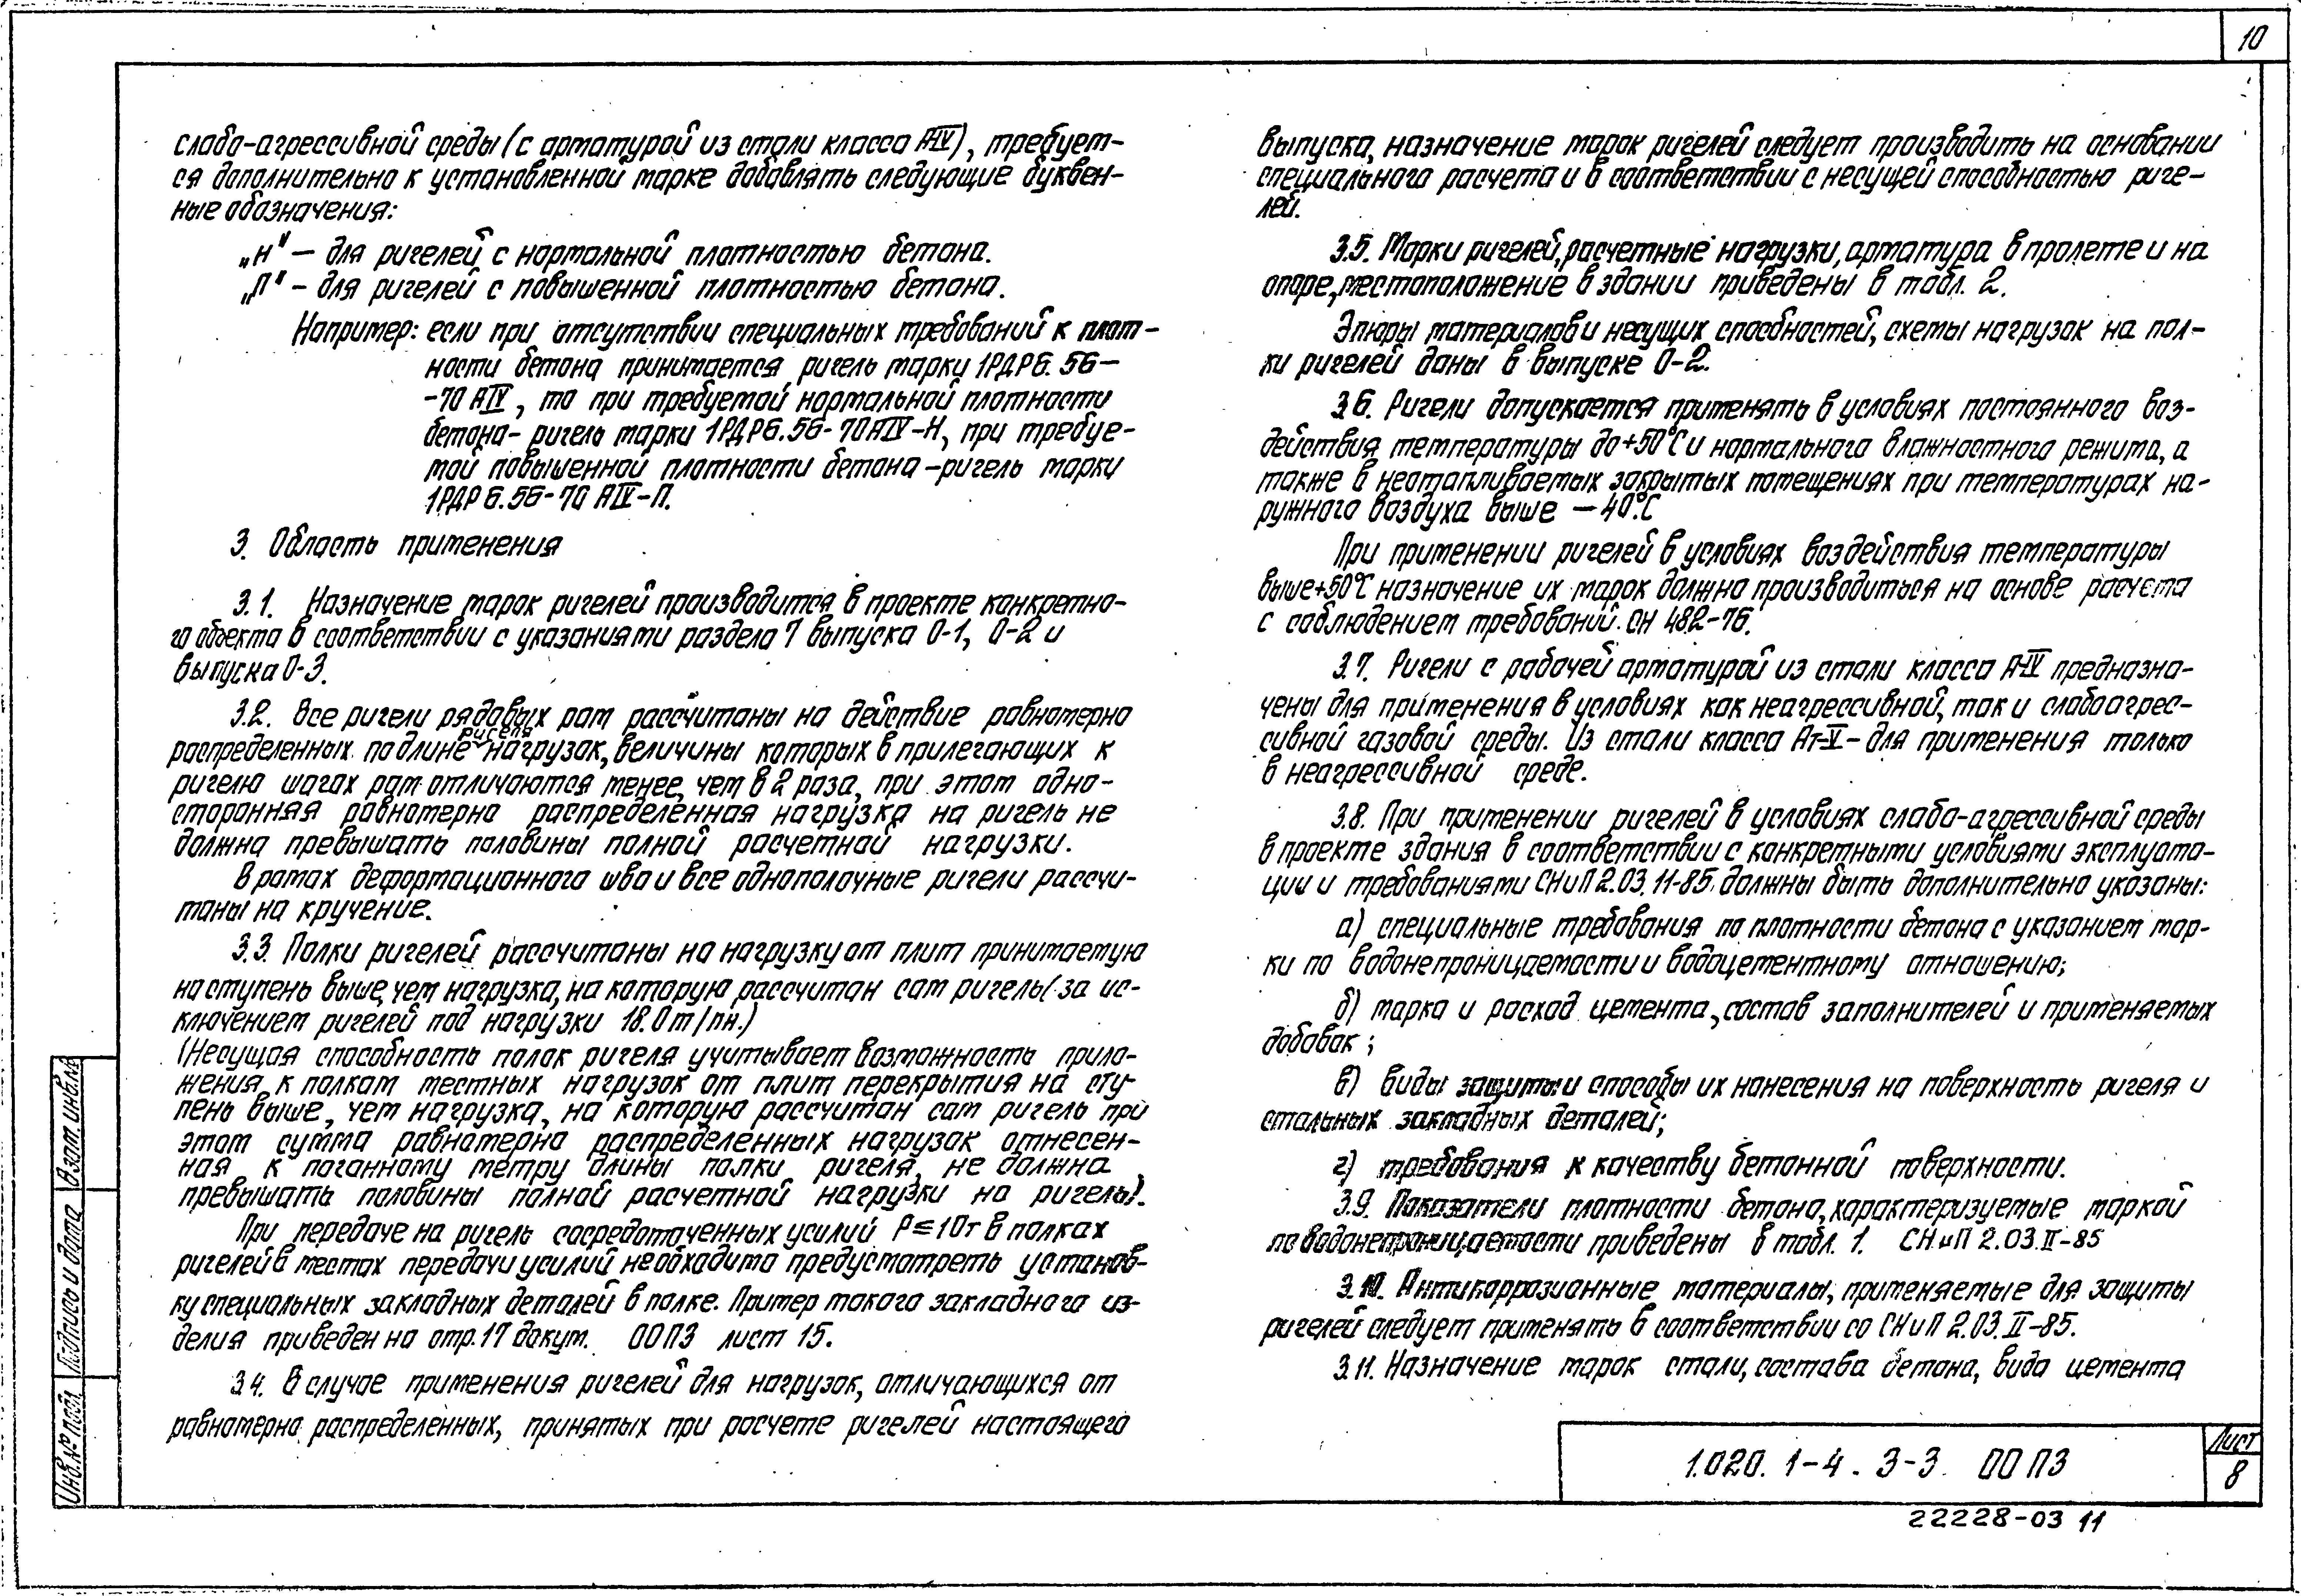 10
слабо-агрессивной среды (с арматурой из стали класса А-IV), требует-
ся дополнительно к установленной марке добавлять следующие буквен-
ные обозначения:
„Н" – для ригелей с нормальной плотностью бетона.
„П" – для ригелей с повышенной плотностью бетона.
Например: если при отсутствии специальных требований к плот-
ности бетона принимается ригель марки 1РДР6.56-
-70 АIV, то при требуемой нормальной плотности
бетона – ригель марки 1РДР6.56-70АIV-Н, при требуе-
мой повышенной плотности бетона – ригель марки
1РДР6.56-70 АIV-П.
3. Область применения
3.1. Назначение марок ригелей производится в проекте конкретно-
го объекта в соответствии с указаниями раздела 7 выпуска 0-1, 0-2 и
выпуска 0-3.
3.2. Все ригели рядовых рам рассчитаны на действие равномерно
распределенных по длине ригеля нагрузок, величины которых в прилегающих к
ригелю шагах рам отличаются менее, чем в 2 раза, при этом одно-
сторонняя равномерно распределенная нагрузка на ригель не
должна превышать половины полной расчетной нагрузки.
В рамах деформационного шва и все однополочные ригели рассчи-
таны на кручение.
3.3. Полки ригелей рассчитаны на нагрузку от плит принимаемую
на ступень выше, чем нагрузка, на которую рассчитан сам ригель (за ис-
ключением ригелей под нагрузки 18.0т/пм.)
(Несущая способность полок ригеля учитывает возможность прило-
жения к полкам местных нагрузок от плит перекрытия на сту-
пень выше, чем нагрузка, на которую рассчитан сам ригель при
этом сумма равномерно распределенных нагрузок отнесен-
ная к погонному метру длины полки ригеля, не должна
превышать половины полной расчетной нагрузки на ригель).
При передаче на ригель сосредоточенных усилий Р≤10т в полках
ригелей в местах передачи усилий необходимо предусмотреть установ-
ку специальных закладных деталей в полке. Пример такого закладного из-
делия приведен на стр.17 докум. 00ПЗ лист 15.
3.4. В случае применения ригелей для нагрузок, отличающихся от
равномерно распределенных, принятых при расчете ригелей настоящего
выпуска, назначение марок ригелей следует производить на основании
специального расчета и в соответствии с несущей способностью риге-
лей.
3.5. Марки ригелей, расчетные нагрузки, арматура в пролете и на
опоре, местоположение в здании приведены в табл. 2.
Эпюры материалов и несущих способностей, схемы нагрузок на пол-
ки ригелей даны в выпуске 0-2.
3.6. Ригели допускается применять в условиях постоянного воз-
действия температуры до +50°С и нормального влажностного режима, а
также в неотапливаемых закрытых помещениях при температурах на-
ружного воздуха выше – 40°С
При применении ригелей в условиях воздействия температуры
выше +50°С назначение их марок должно производиться на основе расчета
с соблюдением требований СН 482-76.
3.7. Ригели с рабочей арматурой из стали класса А-IV предназна-
чены для применения в условиях как неагрессивной, так и слабоагрес-
сивной газовой среды. Из стали класса Ат-V – для применения только
в неагрессивной среде.
3.8. При применении ригелей в условиях слабо-агрессивной среды
в проекте здания в соответствии с конкретными условиями эксплуата-
ции и требованиями СНиП 2.03.11-85 должны быть дополнительно указаны:
а) специальные требования по плотности бетона с указанием мар-
ки по водонепроницаемости и водоцементному отношению;
б) марка и расход цемента, состав заполнителей и применяемых
добавок;
в) виды защиты и способы их нанесения на поверхность ригеля и
стальных закладных деталей;
г) требования к качеству бетонной поверхности.
3.9. Показатели плотности бетона, характеризуемые маркой
по водонепроницаемости приведены в табл. 1. СНиП 2.03.II-85
3.10. Антикоррозионные материалы, применяемые для защиты
ригелей следует применять в соответствии со СНиП 2.03.II-85.
3.11. Назначение марок стали, состава бетона, вида цемента
1.020.1-4. 3-3 00 ПЗ
Лист
8
22228-03 11
Инв.№ подл.
Подпись и дата
Взам. инв.№